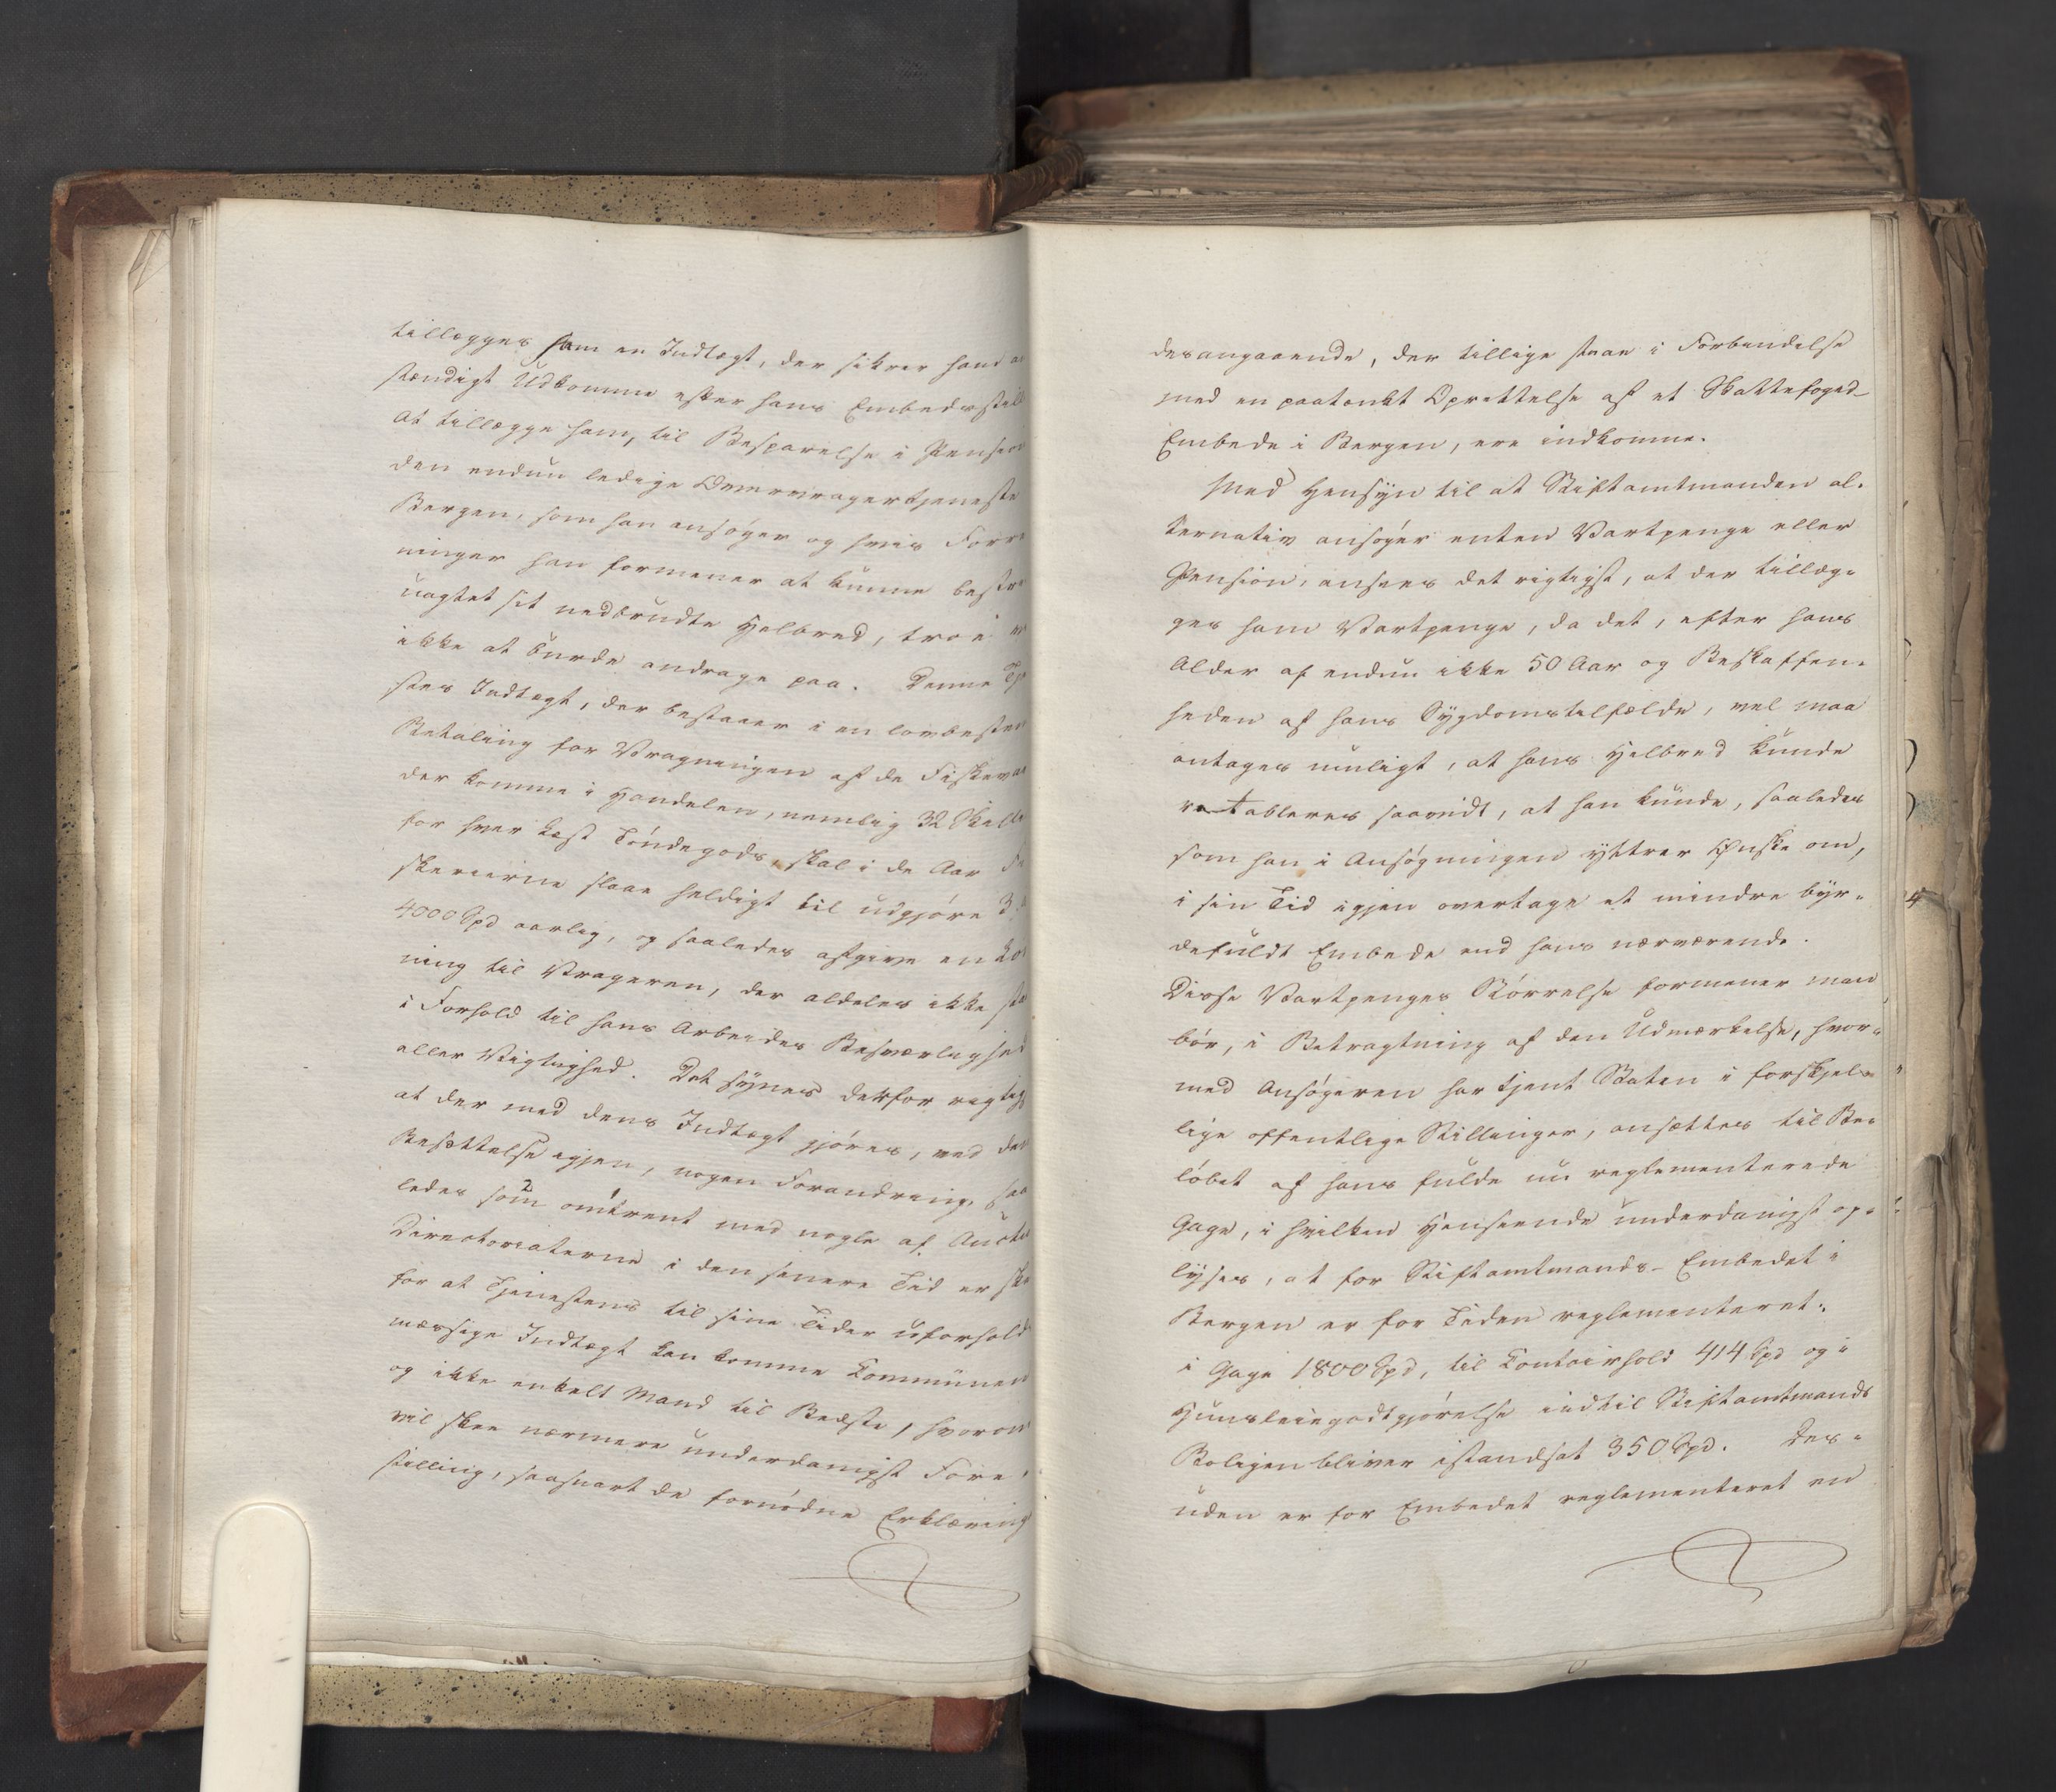 tillægges ham en Indtægt, der sikrer ham an
stændigt Udkomme efter hans Embedsstill
At tillægge ham, til Besparelse i Pension
den endnu ledige Overvragertjeneste
Bergen, som han ansøger og hvis Forre
ninger han formener at kunne bestri
uagtet sit nedbrudte Helbred, troe
ikke at burde andrage paa. Denne Tje
stes Indtægt, der bestaaer i en lovbestem
Betaling for Vragningen af de Fiskevar
der komme i Handelen, nemlig 32 Skill
for hver Læst Tøndegods, skal i de Aar Fi
skerierne slaae heldigt til udgjøre 3 a
4000 Spd aarlig, og saaledes afgive en Løn
ning til Vrageren, der aldeles ikke sta
i Forhold til hans Arbeides Besværlighed
eller Vigtighed. Det synes derfor rigtigs
at der med dens Indtægt gjøres, ved den
Besættelse igjen, nogen Forandring, saa
ledes som omtrent med nogle af Auctio
Directoriaterne i den senere Tid er ske
for at Tjenestens til sine Tider uforhold
mæssige Indtægt kan komme Communen
og ikke enkelt Mand til Bedste, hvorom
vil skee nærmere underdanigst Fore
stilling, saasnart de fornødne Erklæring
desangaaende, der tillige staae i Forbindelse
med en paatænkt Oprettelse af et Skattefoged-
Embede i Bergen, ere indkomne.
Med Hensyn til at Stiftamtmanden al-
ternativ ansøger enten Vartpenge eller
Pension, ansees det rigtigst, at der tillæg-
ges ham Vartpenge, da det, efter hans
Alder af endnu ikke 50 Aar og Beskaffen-
heden af hans Sygdomstilfælde, vel maa
antages muligt, at hans Helbred kunde
retableres saavidt, at han kunde, saaledes
som han i Ansøgningen yttrer Ønske om,
i sin Tid igjen overtage et mindre byr-
defuldt Embede end hans nærværende.
Disse Vartpenges Størrelse formener man
bør, i Betragtning af den Udmærkelse, hvor-
med Ansøgeren har tjent Staten i forskjel-
lige offentlige Stillinger, ansættes til Be-
løbet af hans fulde nu reglementerede
Gage, i hvilken Henseende underdanigst op-
lyses, at for Stiftamtmands-Embedet i
Bergen er for Tiden reglementeret:
i Gage 1800 Spd, til Contoirhold 414 Spd og i
Huusleiegodtgjørelse indtil Stiftamtmands
Boligen bliver istandsat 350 Spd. Des-
uden er for Embedet reglementeret en